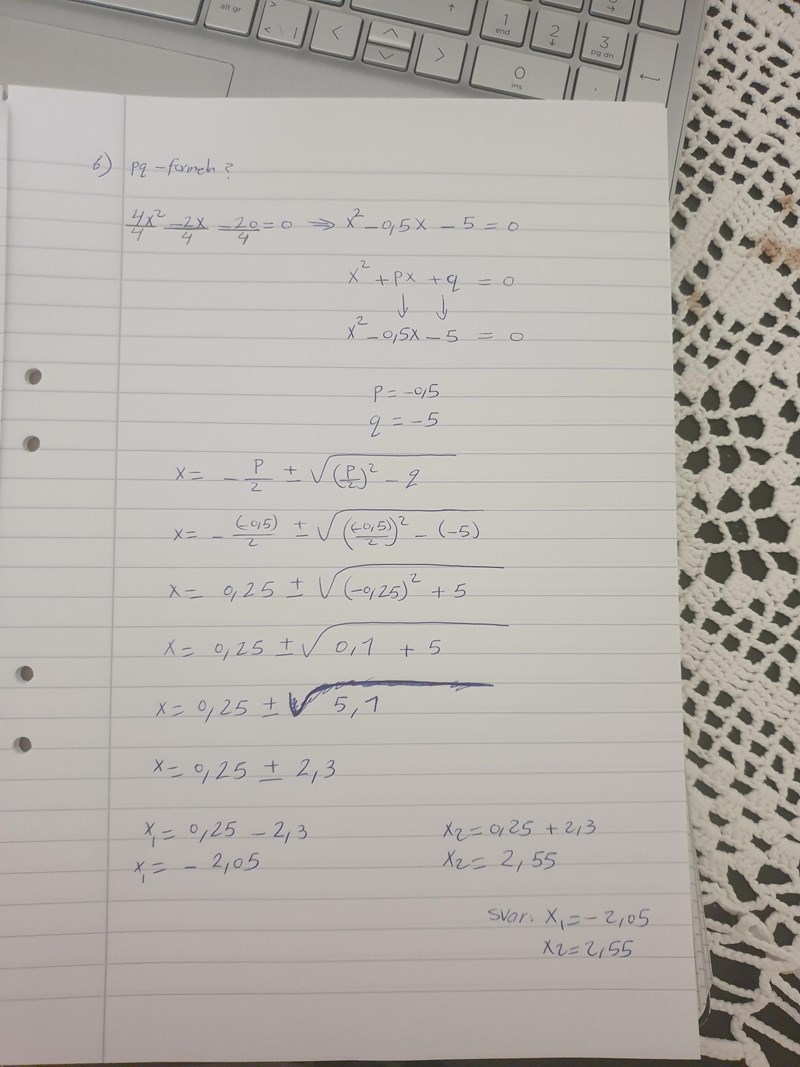 alt gr
>
< \ |
<
>
1
end
2
↓
3
pg dn
0
ins
.
6) pq-formeln?
4x²/4 -2x/4 -20/4 = 0 ⇒ x² - 0,5x - 5 = 0
x² + px + q = 0
↓ ↓
x² - 0,5x - 5 = 0
p = -0,5
q = -5
x = - p/2 ± √((p/2)² - q)
x = - (-0,5)/2 ± √(((-0,5)/2)² - (-5))
x = 0,25 ± √((-0,25)² + 5)
x = 0,25 ± √(0,1 + 5)
x = 0,25 ± √(5,1)
x = 0,25 ± 2,3
x₁ = 0,25 - 2,3 x₂ = 0,25 + 2,3
x₁ = - 2,05 x₂ = 2,55
Svar: x₁ = - 2,05
x₂ = 2,55